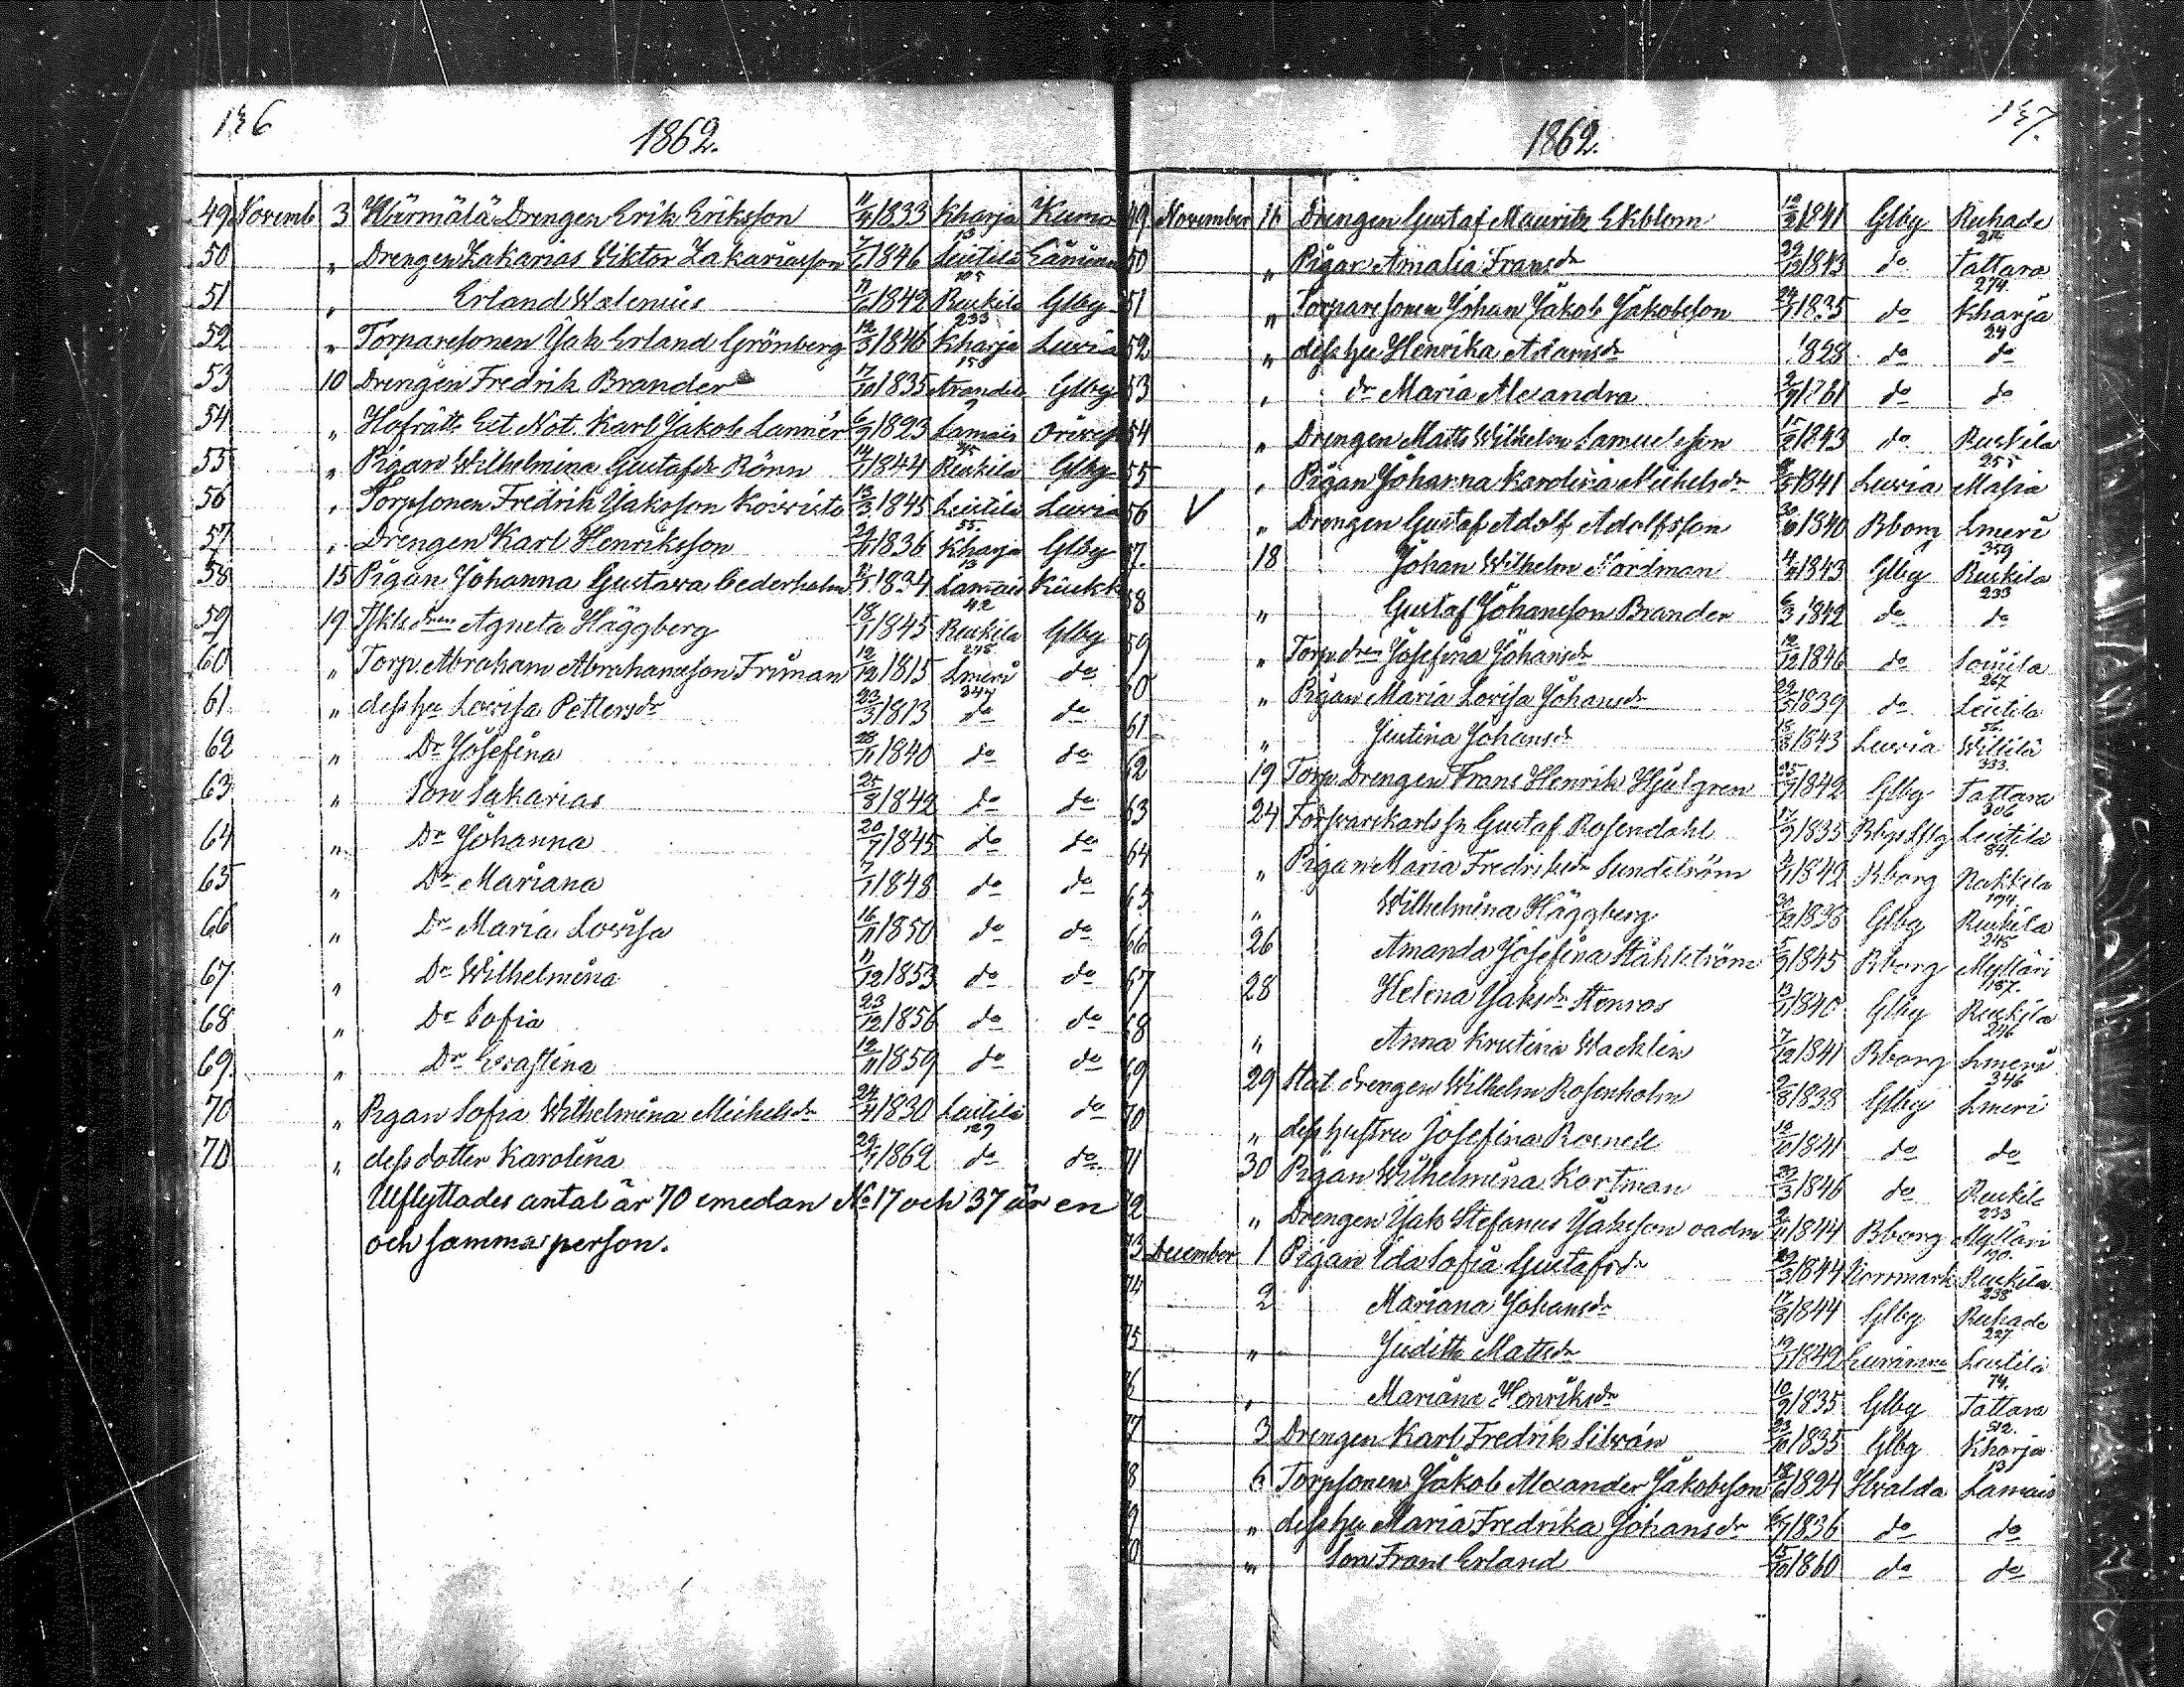 1862.
49 Novemb 3 Härmälä Drengen Erik Eriksson 11/4 1833 Kharja 13 Kumo
50 " Drengen Zakarias Wiktor Zakariasson 1846 Leistilä 105
51 " Erland Walenius 11/6 1842 Ruskila 233 Glby
52 " Torparesonen Jak Erland Grönberg 12/3 1846 Kharja 150 Luvia
53 10 Drengen Fredrik Brander 17/10 1835 Glby
54 " Hofrätts Ext Not. Karl Jakob Lanner 6/9 1823 Lamais
55 " Pigan Wilhelmina Gustafsdr Rönn 14/1 1844 Ruskila Glby
56 " Torpsonen Fredrik Jaksson Koivisto 13/3 1845 Leistilä 55. Luvia
57 " Drengen Karl Henriksson 1836 Kharja 13 Glby
58 15 Pigan Johanna Gustava Cederholm 1834 Lamais 42
59 19 Agneta Häggberg 18/1 1845 Ruskila 248 Glby
60 " Torp. Abraham Abrahamsson Friman 12/12 1815 Lmeri 347 do
61 " dess hu Lovisa Pettersdr 23/3 1813 do do
62 " Dr Josefina 28/11 1840 do do
63 " Son Sakarias 25/8 1842 do do
64 " Dr Johanna 20/7 1845 do do
65 " Dr Mariana 7/1 1848 do do
66 " Dr Maria Lovisa 16/11 1850 do do
67 " Dr Wilhelmina 11/12 1853 do do
68 " Dr Sofia 23/12 1856 do do
69 " Dr Evastina 12/11 1859 do do
70 " Pigan Sofia Wilhelmina Michelsdr 24/4 1830 Leistilä 129 do
70 " dess dotter Karolina 1862 do do
Utflyttades antal är 70 emedan No 17 och 37 är en
och samma person.
1862.
49 November 16 Drengen Gustaf Mauritz Ekblom 1841 Glby Ruhade
50 " Pigan Amalia Fransdr 1843 do Tattara 274
51 " Torparesonen Johan Jakob Jakobsson 1835 do Kharja 24
52 " dess hu Henrika Adamsdr 1828 do do
53 " dr Maria Alexandra do do
54 " Drengen Matts Wilhelm Samuelsson 1843 do Ruskila 255
55 " Pigan Johanna Karolina Michelsdr 1841 Luvia Masia
56 " Drengen Gustaf Adolf Adolfsson 1840 Bborg Lmeri 359
57. 18 Johan Wilhelm Nordman 1843 Glby Ruskila 233
58 " Gustaf Johansson Brander 6/3 1842 do do
59 " Torp. dren Josefina Johansdr 12/12 1846 do Soinila 267
60 " Pigan Maria Lovisa Johansdr 1839 do Leistila 56.
61 " Justina Johansdr 1843 Luvia Willilä 333.
62 19 Torp. Drengen Frans Henrik Hjulgren 1842 Glby Tattara 306
63 24 Gustaf Rosendahl 1835 Leistila 84.
64 " Pigan Maria Fredriksdr Sundström 1842 Bborg Nakkila 194.
65. " Wilhelmina Häggberg 1838 Glby Ruskila 248
66 26 Amanda Josefina Ståhlström 1845 Bborg Myllari 187.
67 28 Helena Jaksdr Stenros 1840 Glby Ruskila 246
68 " Anna Kristina Wacklin 7/12 1841 Bborg Lmeri 346
69 29 Stat. drengen Wilhelm Rosenholm 1838 Glby Lmeri
70 " dess hustru Josefina 1841 do do
71 30 Pigan Wilhelmina Kortman 1846 do Ruskila 233
72 " Drengen Jak Stefanus Jaksson 1844 Bborg Myllari 190.
73 December 1 Pigan Ida Sofia Gustafsdr 1844 Norrmark Ruskila 238
74 2 Mariana Johansdr 1844 Glby Ruhade 227.
75 " Judith Mattsdr 1842 Leistila 74.
76 " Mariana Henriksdr 10/9 1835 Glby Tattara 312.
77 3 Drengen Karl Fredrik Silván 23/10 1835 Glby Kharja 13
78 6 Torpsonen Jakob Alexander Jakobsson 1824 Hvalda Lamais
79 " dess hu Maria Fredrika Johansdr 1836 do do
80 " Son Frans Erland 15/10 1860 do do